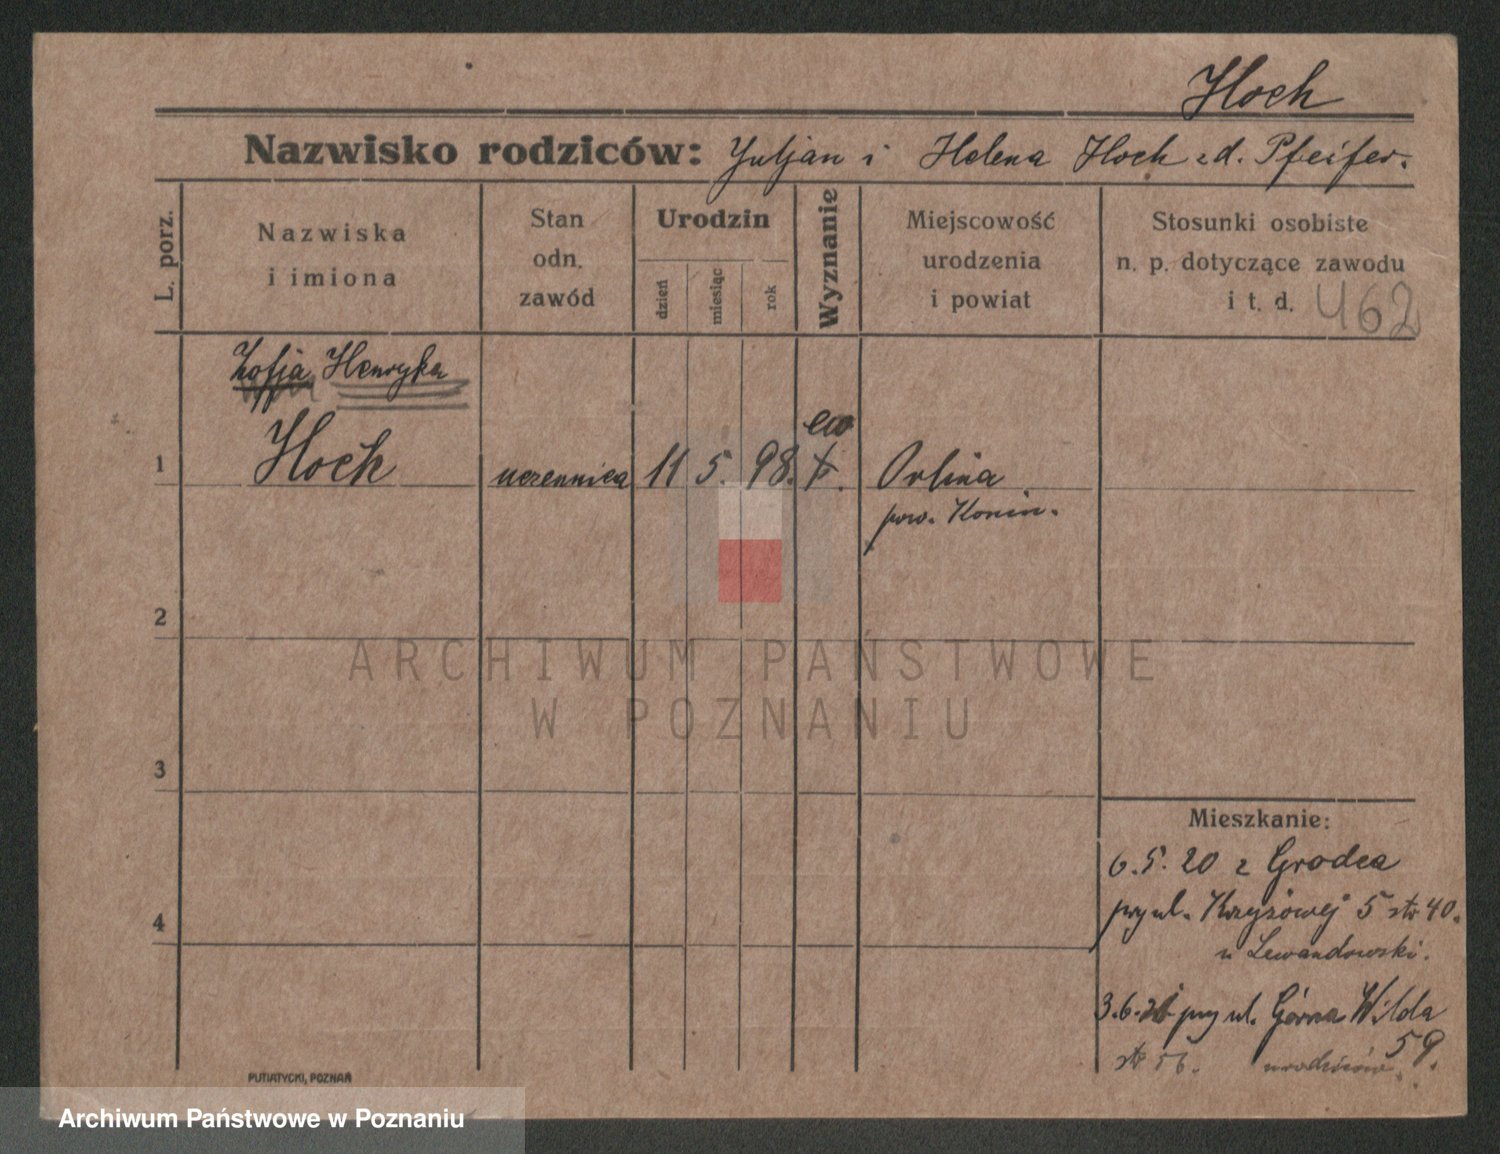 Hoch
Nazwisko rodziców: Juljan i Helena Hoch zd. Pfeifer.
L. porz.
Nazwiska
i imiona
Stan
odn.
zawód
Urodzin
dzień
miesiąc
rok
Wyznanie
Miejscowość
urodzenia
i powiat
Stosunki osobiste
n. p. dotyczące zawodu
i t. d. 462
Zofja Henryka
ew
1 Hoch uczennica 11 5. 98. k. Orlina
pow. Konin.
2
3
4
ARCHIWUM PAŃSTWOWE
W POZNANIU
Mieszkanie:
6.5.20 z Grodca
przy ul. Krzyżowej 5 str 40.
u Lewandowski.
3.6. przy ul. Górna Wilda
59.
str 56. u rodziców.
PUTIATYCKI, POZNAŃ
Archiwum Państwowe w Poznaniu